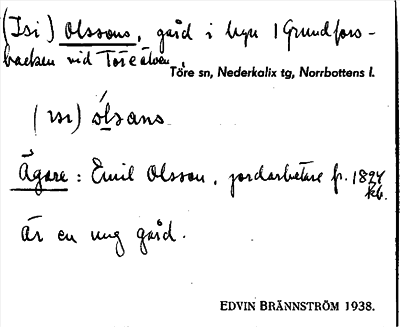 (Isi) Olssons, gård i byn / Grundfors-
backen vid Töreälven.
Töre sn, Nederkalix tg, Norrbottens l.
(ısı) ólsans
Ägare: Emil Olsson, jordarbetare f. 1894
kb.
Är en ung gård.
EDVIN BRÄNNSTRÖM 1938.